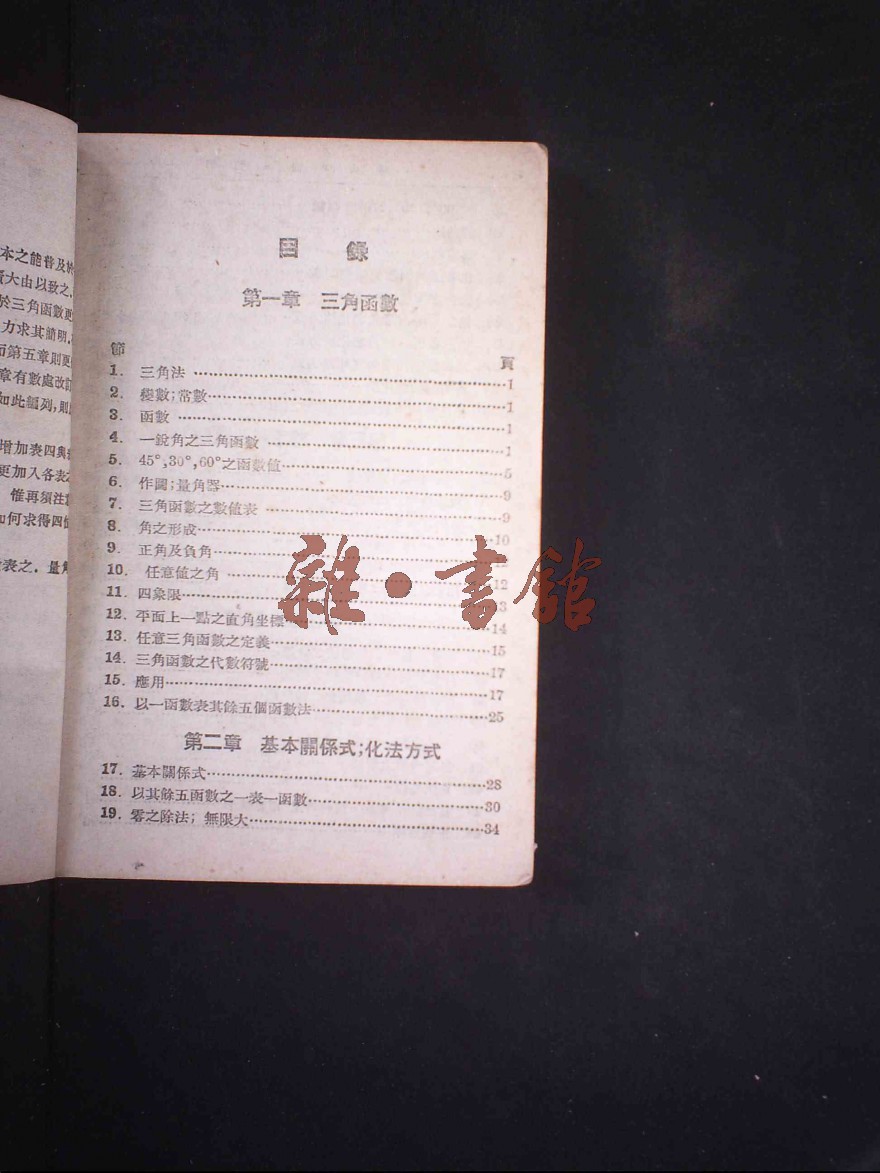 本之能普及於
大由以致之.
於三角函數更
力求其簡明,
而第五章則更
章有數處改訂
如此編列,則
增加表四與
更加入各表之
惟再須注意
如何求得四位
表之.量角
目 錄
第一章 三角函數
節 頁
1. 三角法 ……………………1
2. 變數;常數……………………1
3. 函數 ……………………1
4. 一銳角之三角函數 ……………………1
5. 45°,30°,60°之函數值……………………5
6. 作圖;量角器……………………9
7. 三角函數之數值表 ……………………9
8. 角之形成……………………10
9. 正角及負角……………………12
10. 任意值之角 ……………………12
11. 四象限……………………13
12. 平面上一點之直角坐標……………………14
13. 任意三角函數之定義……………………15
14. 三角函數之代數符號……………………17
15. 應用……………………17
16. 以一函數表其餘五個函數法……………………25
第二章 基本關係式;化法方式
17. 基本關係式……………………28
18. 以其餘五函數之一表一函數……………………30
19. 零之除法; 無限大……………………34
雜·書館